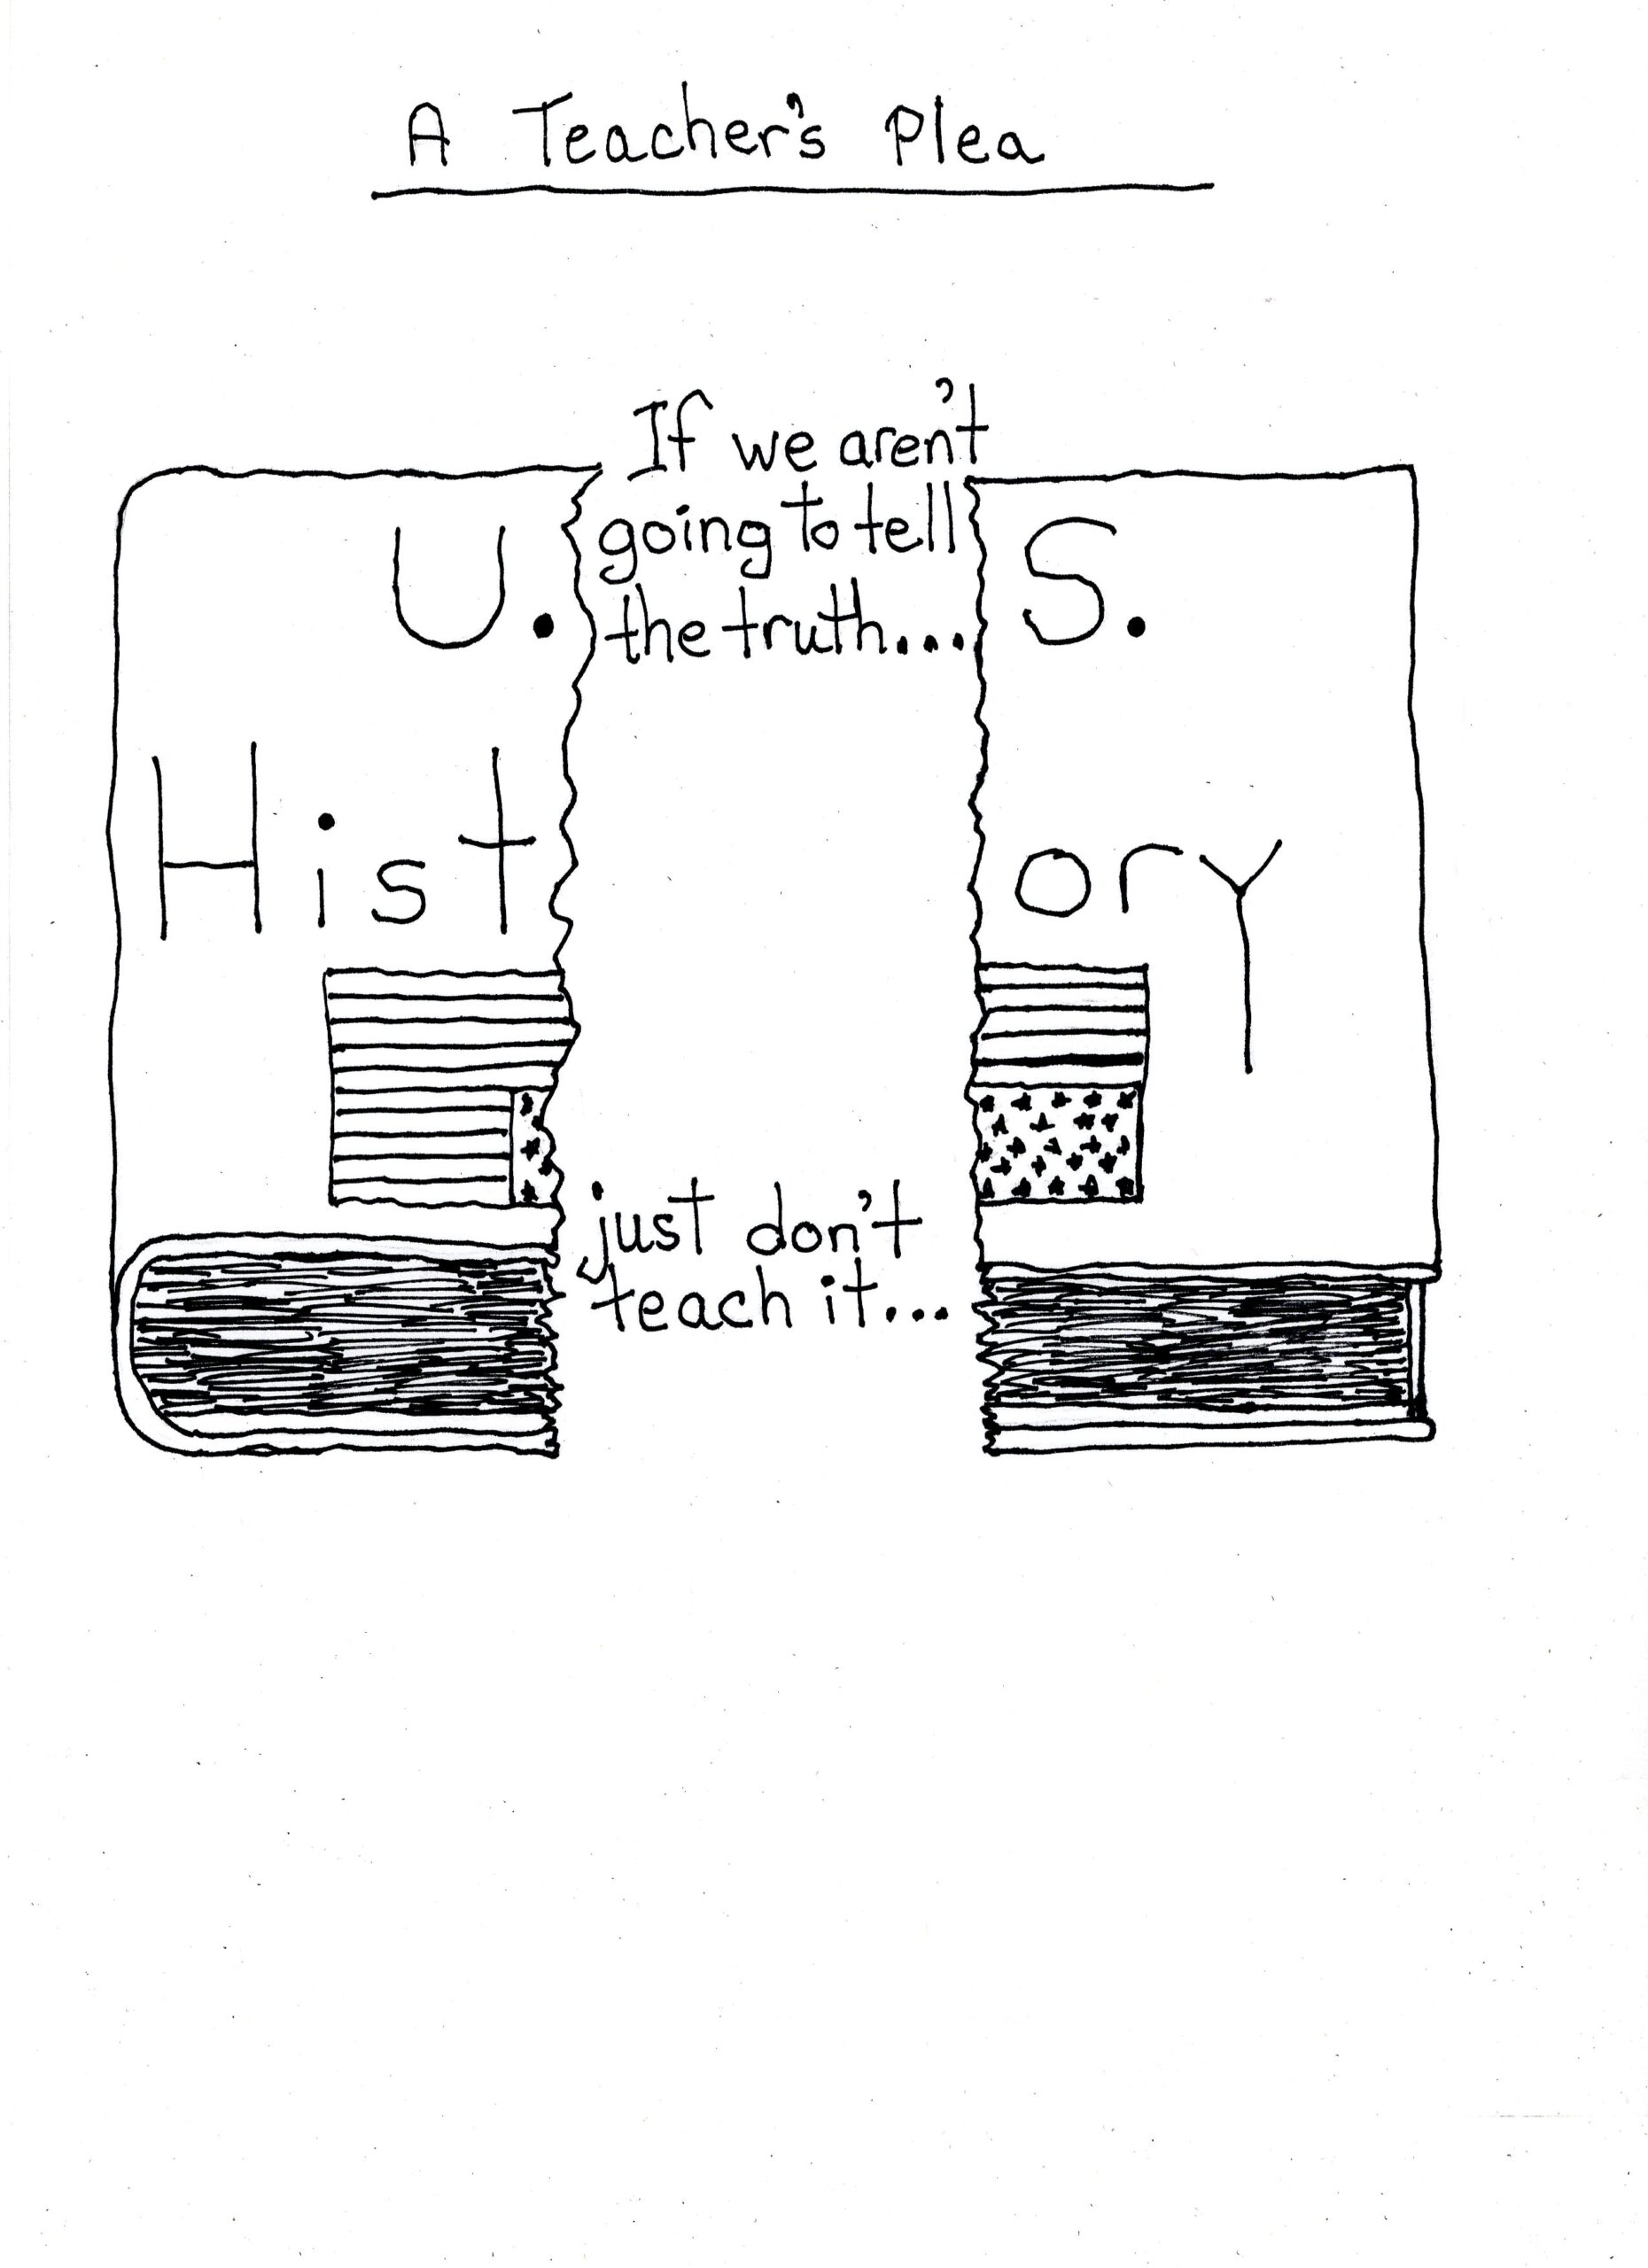 A Teacher's Plea
If we aren't
going to tell
the truth...
U. S.
History
just don't
teach it...